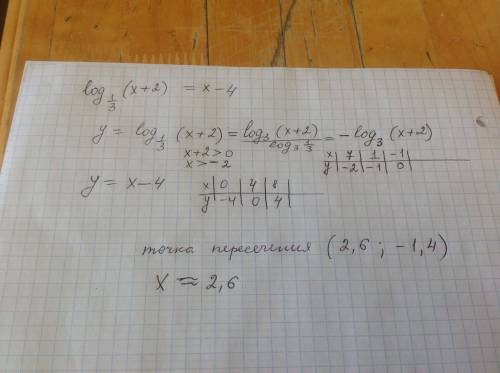 log_{1/3} (x+2) = x-4
y = log_{1/3} (x+2) = \frac{log_3 (x+2)}{log_3 \frac{1}{3}} = -log_3 (x+2)
x+2>0
x>-2
x | 7 | 1 | -1
y | -2 | -1 | 0
y = x-4
x | 0 | 4 | 8
y | -4 | 0 | 4
точка пересечения (2,6 ; -1,4)
x ≈ 2,6